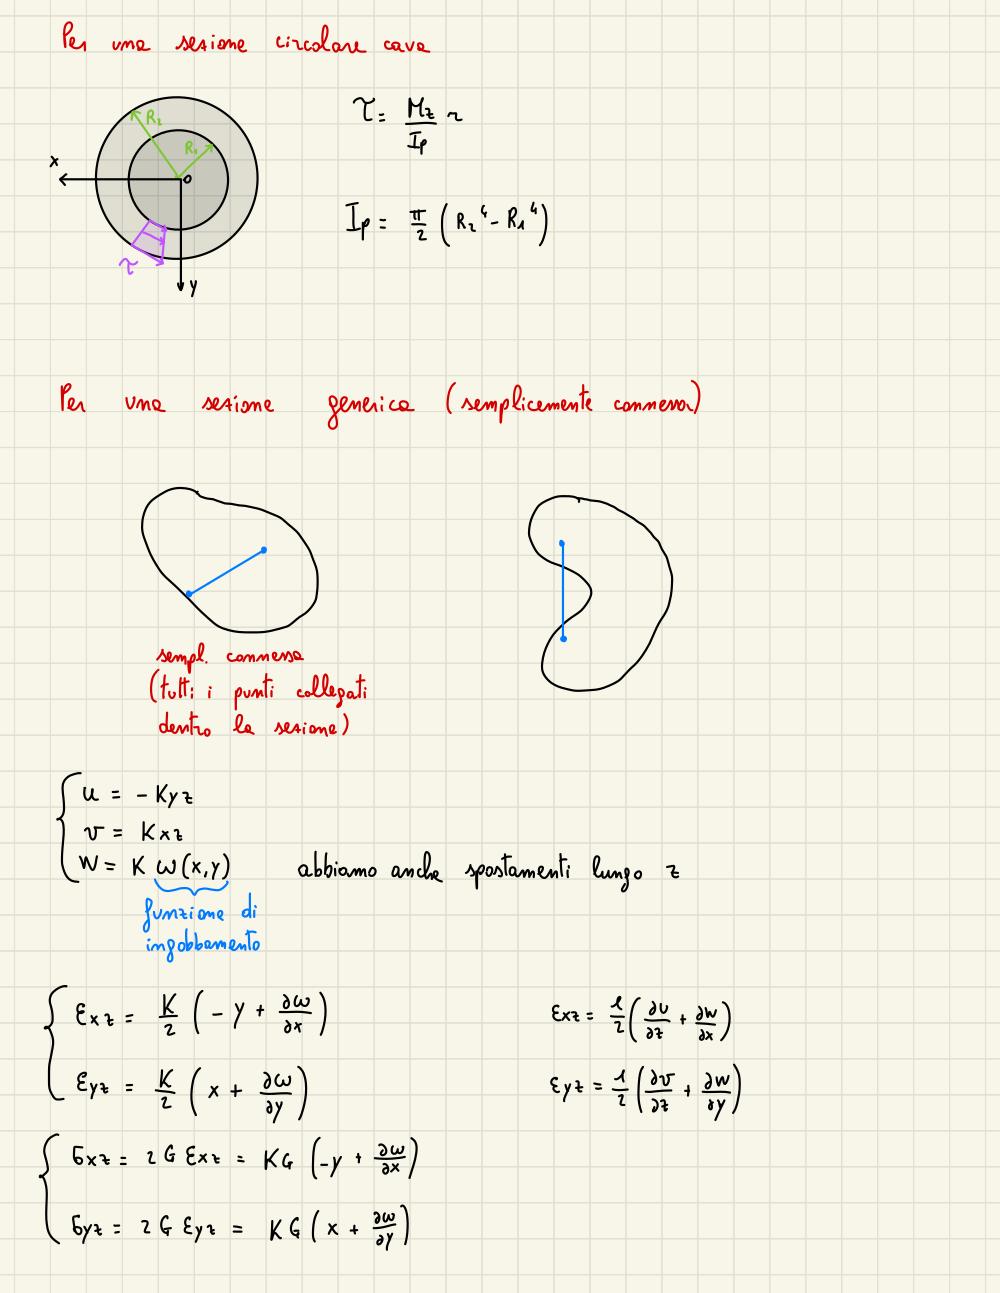 Per una sezione circolare cava
R₂
R₁
x
o
τ
y
τ = Mz/Ip r
Ip = π/2 (R₂⁴ - R₁⁴)
Per una sezione generica (semplicemente connessa)
sempl. connessa
(tutti i punti collegati
dentro la sezione)
u = - K y z
v = K x z
w = K ω(x,y) abbiamo anche spostamenti lungo z
funzione di
ingobbamento
εxz = K/2 (- y + ∂ω/∂x) εxz = 1/2 (∂u/∂z + ∂w/∂x)
εyz = K/2 (x + ∂ω/∂y) εyz = 1/2 (∂v/∂z + ∂w/∂y)
σxz = 2 G εxz = KG (-y + ∂ω/∂x)
σyz = 2 G εyz = KG (x + ∂ω/∂y)